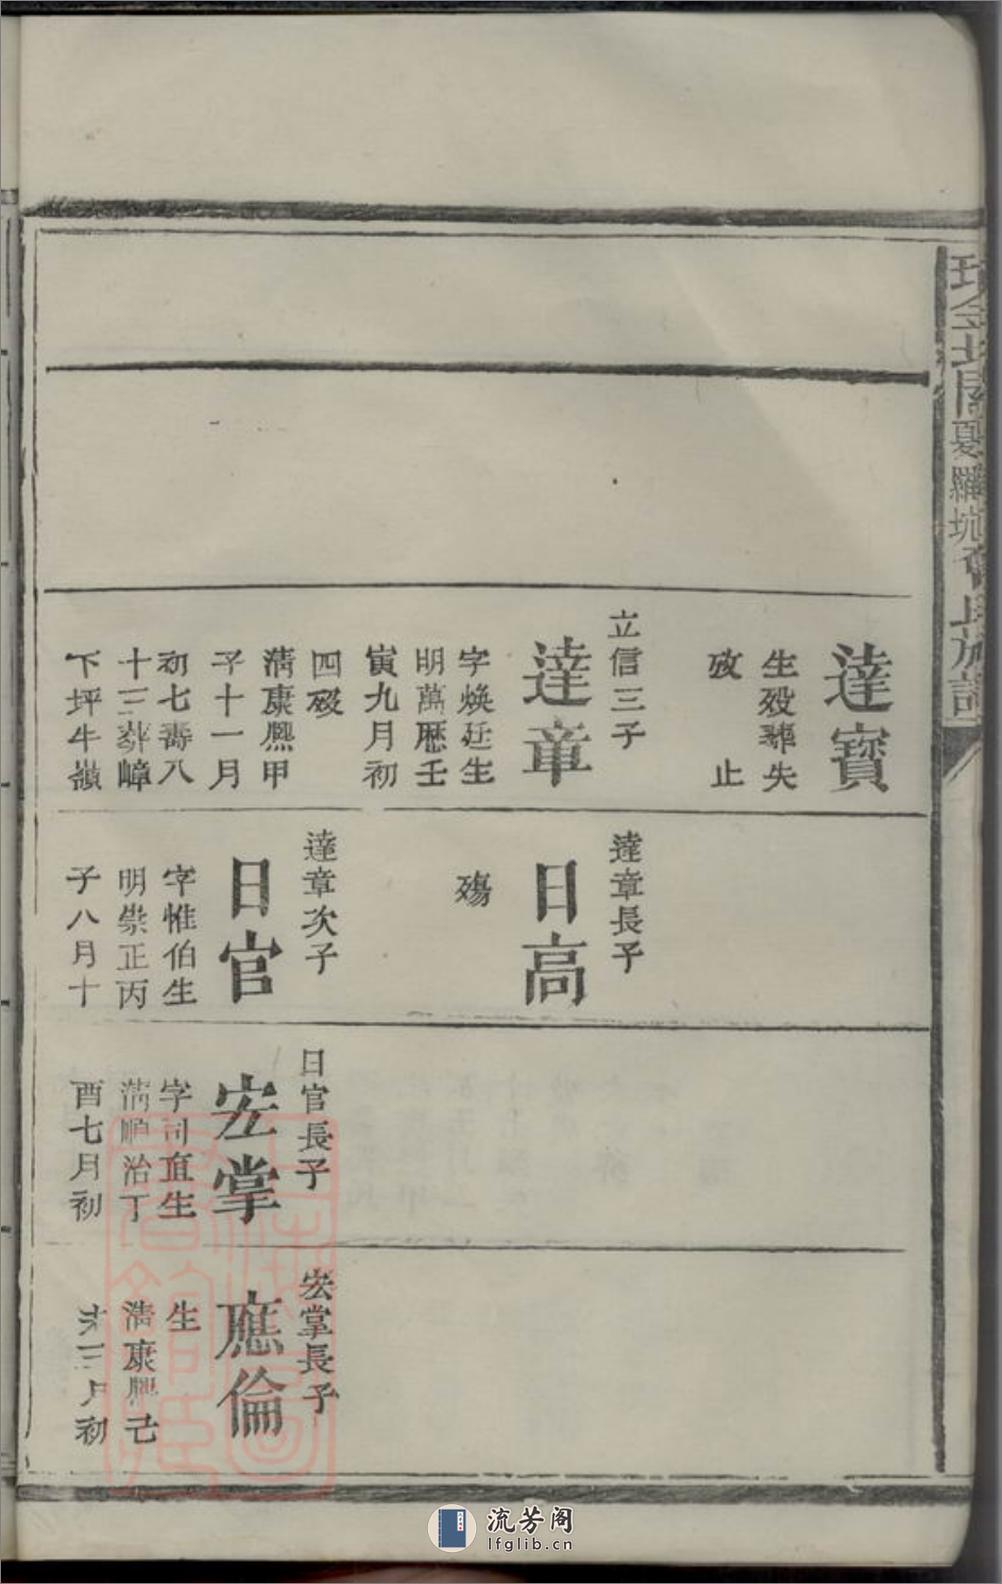 夏羅坑
族譜
達寶
生歿葬失
攷止
立信三子
達章
字煥廷生
明萬歷壬
寅九月初
四歿
清康熙甲
子十一月
初七壽八
十三葬嶂
下坪牛嶺
達章長子
日高
殤
達章次子
日官
字惟伯生
明崇正丙
子八月十
日官長子
宏掌
字司直生
清順治丁
酉七月初
宏掌長子
應倫
生
清康熙己
未三月初
流芳阁
lfglib.cn